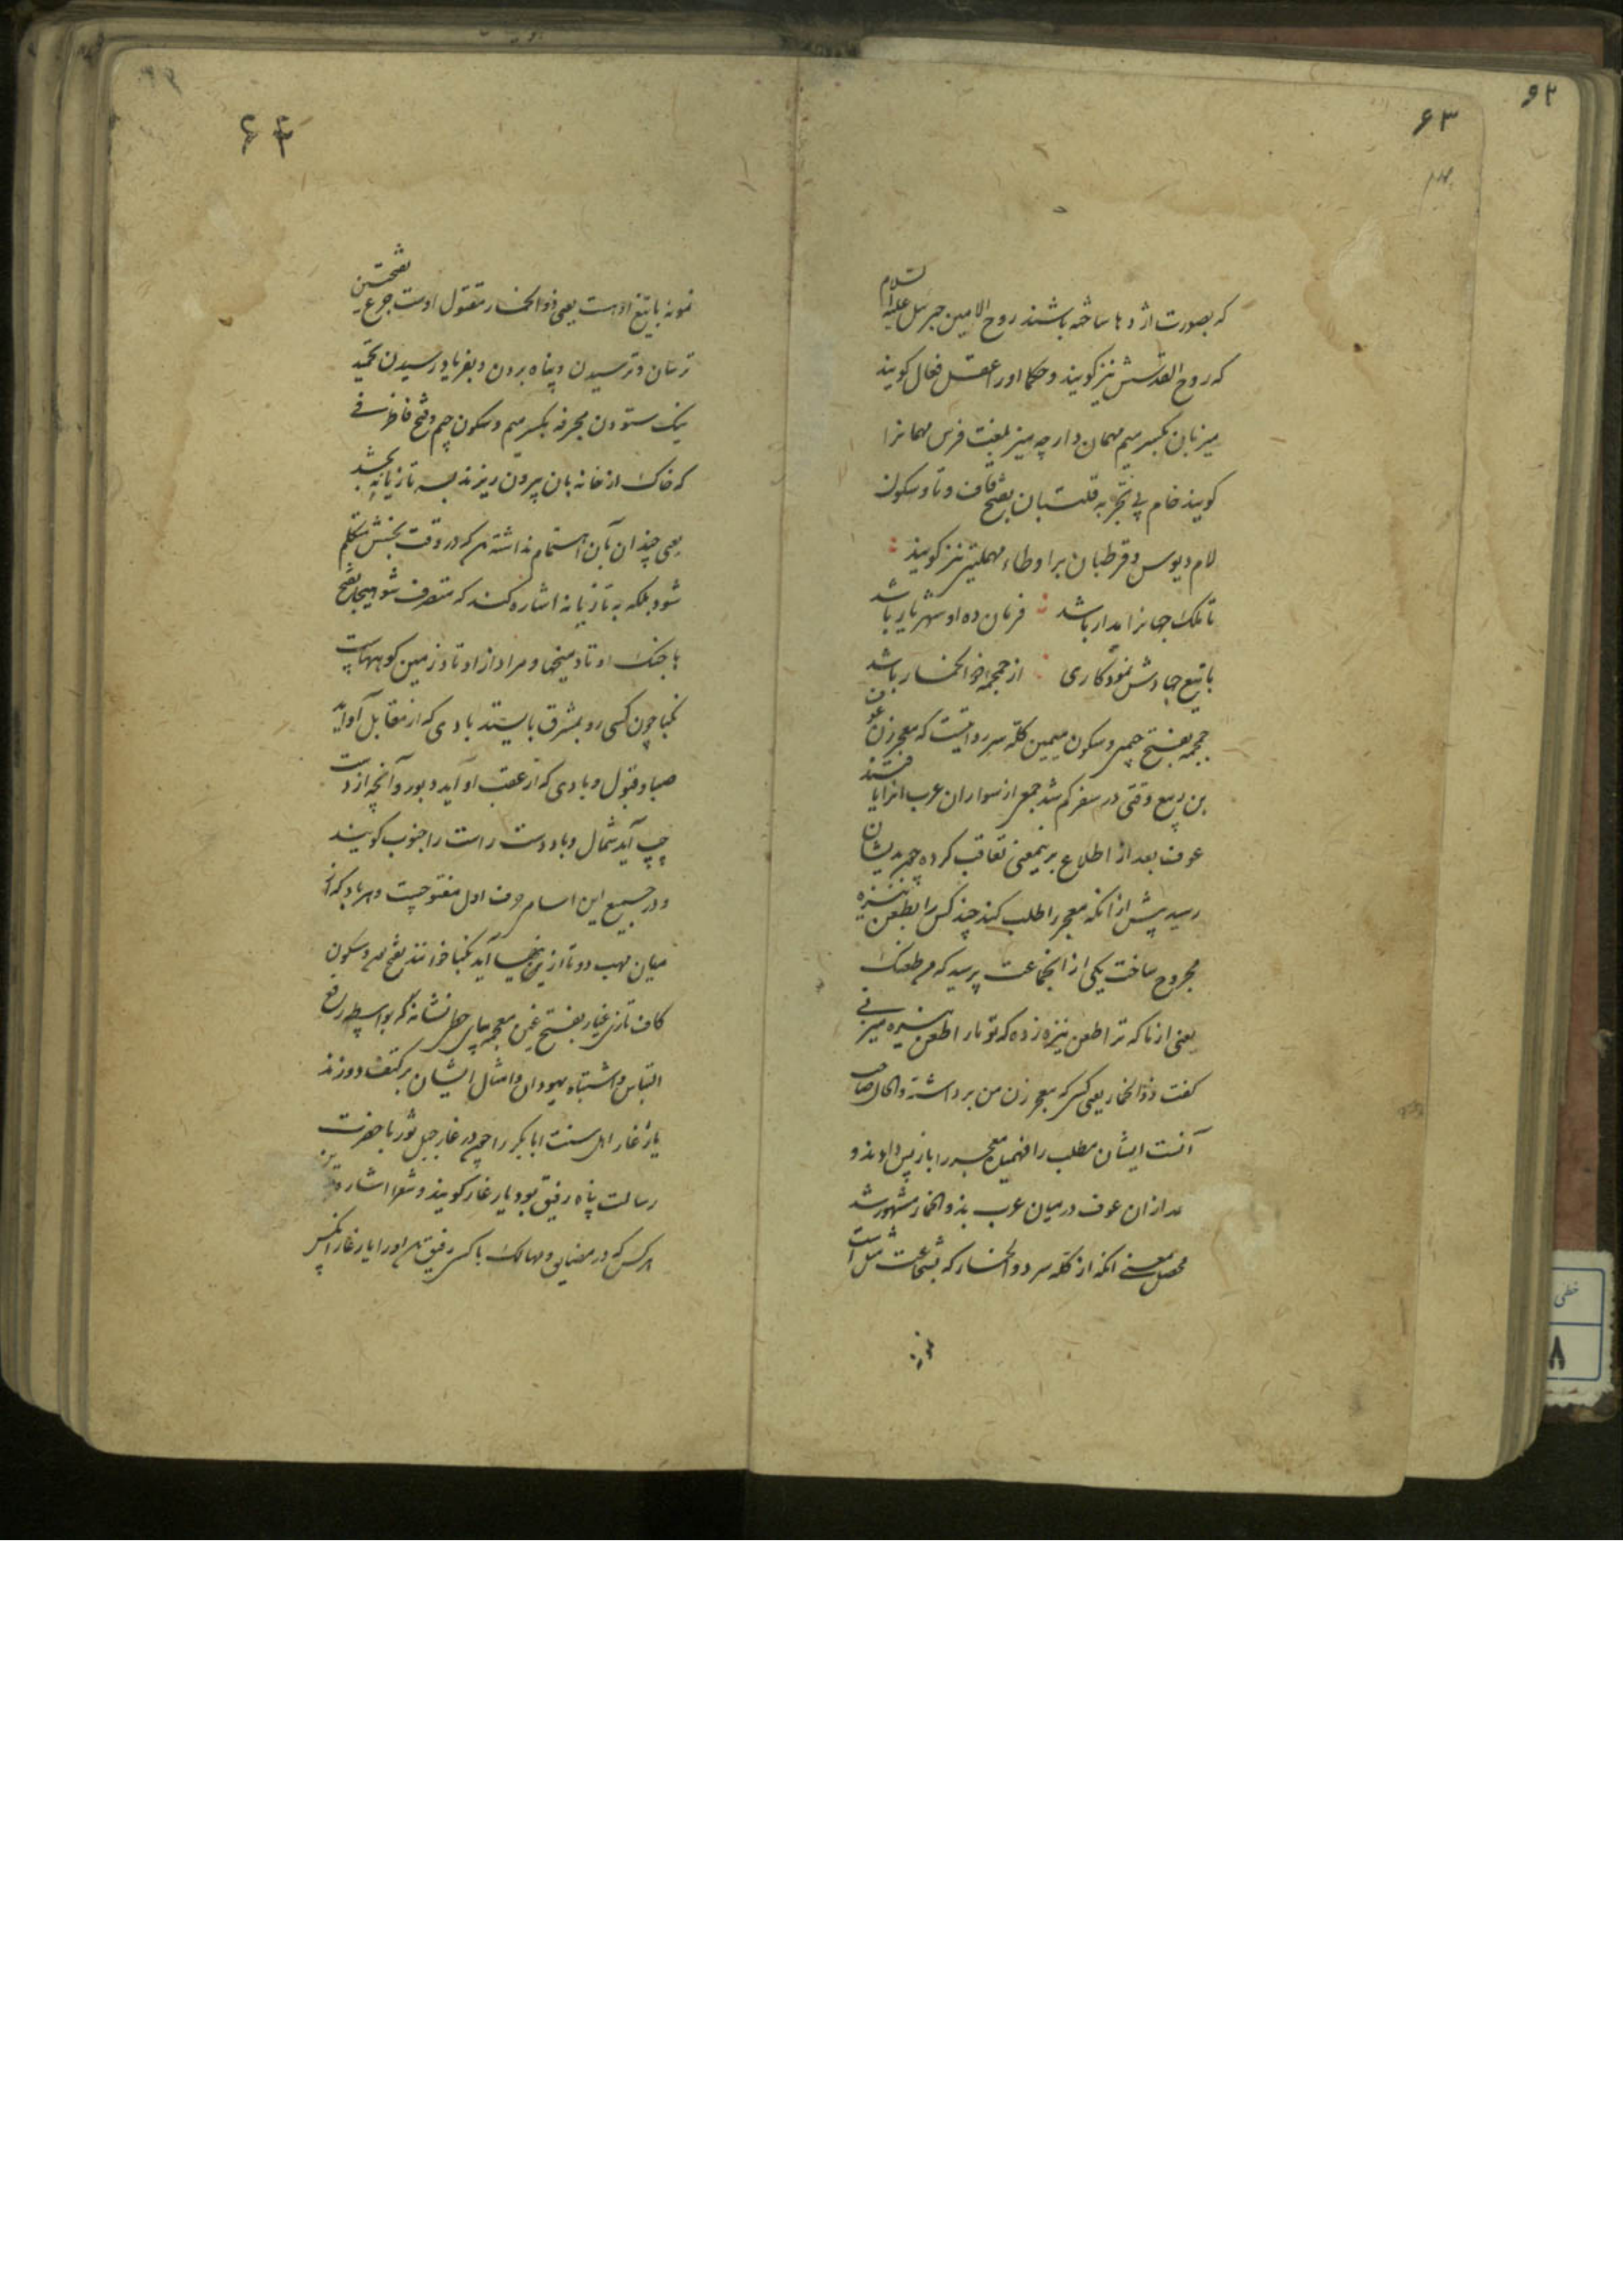 ۶۲
۶۳
که بصورت اژدها ساخته باشند روح الامین جبرئیل علیه السلام
که روح القدسش نیز گویند و حکما او را عقل فعال گویند
میزبان بکسر میم مهمان دار چه میز بلغت فرس مهمانرا
گویند خام بی تجربه قلتبان بفتح قاف و تا و سکون
لام دیوس و قرطبان برا و طاء مهملتین نیز گویند
تا ملک جهانرا مدار باشد فرمان ده او شهریار باشد
با تیغ جهادش نمودکاری از جمجمه ذو الخمار باشد
جمجمه بفتح جیمین و سکون میمین کله سر روایتست که معجر زن عوف
بن ربیع وقتی در سفر کم شد جمعی از سواران عرب انرا یافتند
عوف بعد از اطلاع برینمعنی تعاقب کرده چون بدیشان
رسید پیش از انکه معجر را طلب کند چند کس را بطعن نیزه
مجروح ساخت یکی از انجماعت پرسید که من طعنک
یعنی از ما که ترا طعن نیزه زده که تو ما را طعن نیزه میزنی
گفت ذو الخمار یعنی کسی که معجر زن من برداشته و الحال صاحب
آنست ایشان مطلب را فهمیده معجر را باز پس دادند و
بعد از ان عوف در میان عرب بذو الخمار مشهور شد
محصل معنی انکه از کله سر ذو الخمار که بشجاعت مثل است
نمونه
۶۴
نمونه با تیغ او هست یعنی ذو الخمار مقتول اوست جزع بفتحتین
ترسان و ترسیدن و پناه بردن و بفریاد رسیدن تحمید
نیک ستودن مجرفه بکسر میم و سکون جیم و فتح فا ظرفی
که خاک از خانه بان بیرون ریزند بسر تازیانه بخشد
یعنی چندان بآن اهتمام نداشته که در وقت بخشش متکلم
شود بلکه بتازیانه اشاره کند که متصرف شو هیجا بفتح
ها جنک اوتاد میخها و مراد از اوتاد زمین کوههاست
نکبا چون کسی رو بمشرق بایستد بادی که از مقابل او آید
صبا و قبول و بادی که از عقب او آید دبور و آنچه از دست
چپ آید شمال و باد دست راست را جنوب گویند
و در جمیع این اسام حرف اول مفتوحست و هر باد که از
میان مهب دو تا ازینها آید نکبا خوانند بفتح نون و سکون
کاف تازی غیار بفتح غین معجمه بجای حطی نشانه که بواسطه رفع
التباس و اشتباه یهودان و امثال ایشان بر کتف دوزند
یار غار اهل سنت ابابکر را چون در غار جبل ثور با حضرت
رسالت پناه رفیق بود یار غار گویند و شعرا اشاره
هر کس که در مضایق و مهالک با کسی رفیق او را یار غار
خطی
۸